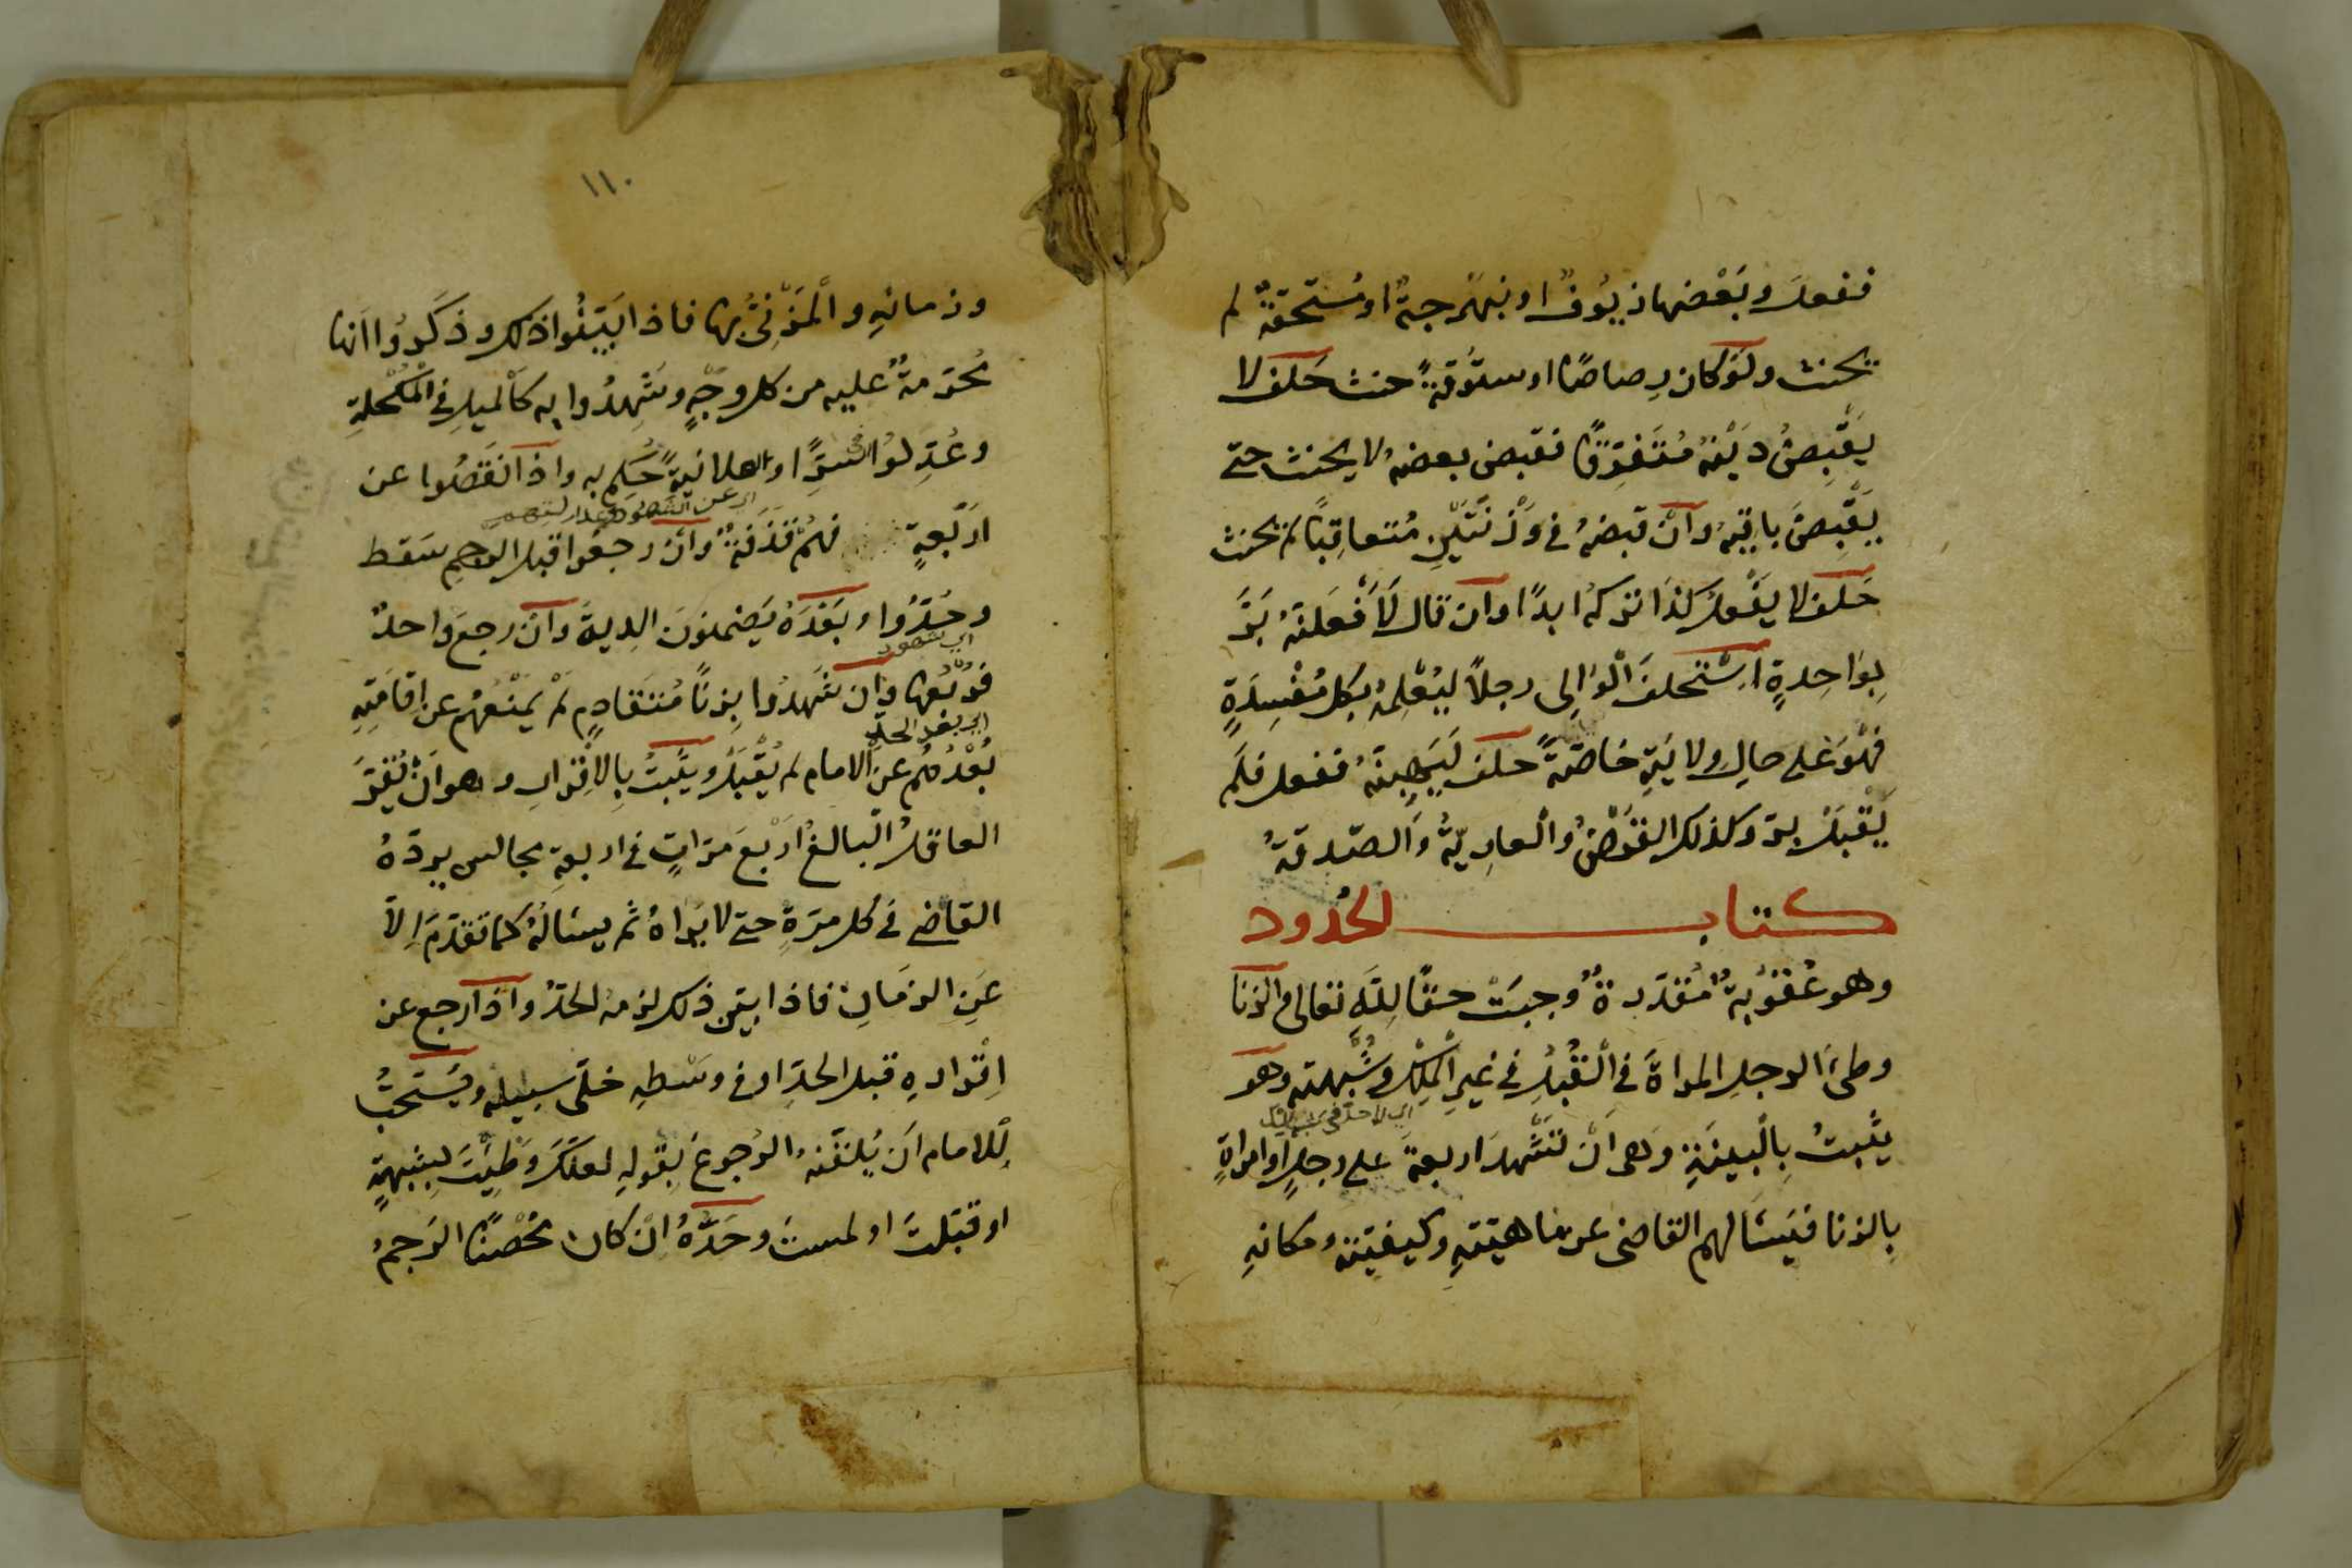 ففعل وبَعْضها زيُوفٌ او نبهْرجةٌ او مُستَحقةٌ لم
يحنث ولَوْ كان رِصاصًا او ستُّوقةً حنث حَلف لا
يَقْبِضُ دَيْنهُ مُتَفَرِّقًا فقبض بعضهُ لا يحنث حتى
يَقْبِضَ باقيهُ وان قبضهُ في وَزْنَتَيْنِ مُتعاقِبًا لم يحنث
حَلف لا يفْعل كذا تركهُ ابدًا وان قال لَأَفْعَلنَّهُ بَرَّ
بِوَاحِدةٍ اسْتَحلفَ الْوَالِي رجلًا ليُعْلِمَهُ بكل مُفْسِدَةٍ
فهْوَ على حالِ ولايَتِهِ خاصّةً حلف لَيَهِبنَّهُ ففعل فلَم
يَقْبَلْ برَّ وكذلك القَرْضُ والْعارِيّةُ وَالصّدقةُ
كتاب الحُدود
وهو عُقُوبةٌ مُقدّرةٌ وجبَتْ حقًّا لِلّهِ تعالى والزنا
وطئُ الرجلِ المراةَ في الْقُبُلِ في غيرِ الْمِلْكِ وشُبْهته وهو
اي لا حد في
يثْبتُ بِالْبينَةِ وَهى انْ تَشْهدَ اربعةٌ على رجلٍ او امراةٍ
بالزنا فيَسْالهم القاضى عن ماهيّتهِ وكيفيّته ومكانهِ
١١٠
وزمانهِ والْمَزْنِيِّ بها فاذا بَيَّنُوا ذلك وذكَرُوا انها
مُحَرّمةٌ عليه من كل وجْهٍ وشَهِدُوا به كالْميلِ في الْمُكْحُلةِ
وعُدِّلُوا في السِّرِّ او العلانيةِ حُكِم به واذا نقَصُوا عن
اي عن الشهود
ارْبَعةٍ فهُمْ قَذَفةٌ وانْ رجعُوا قبل الرجمِ سَقط
وحُدُّوا وبَعْدَهُ يَضمنونَ الدِيةَ وان رجعَ واحدٌ
اي شهود
فرُبْعها وان شَهدُوا بِزنًا مُتقادِمٍ لَمْ يَمْنعْهُم عن اقامَتِهِ
اي بعد الحد
بُعْدُهُم عن الامام لم يُقْبَلْ ويثْبتُ بِالاقْرارِ وهو انْ يُقِرَّ
العاقلُ البالغُ ارْبعَ مرّاتٍ في اربعةِ مجالس يردّهُ
القاضي في كل مرّةٍ حتى لا يرَاهُ ثم يسْالُهُ كما تقدّمَ اِلّا
عَنِ الزمَانِ فاذا بيّن ذلك لزمهُ الحدُّ واذا رجع عن
اِقْرارهِ قبل الحدِّ او في وسْطِهِ خلّى سبيله ويُسْتَحبُّ
لِلامام اَن يُلقّنهُ الرُجوعَ بِقولِهِ لعلّكَ وَطِئْتَ بِشبهةٍ
او قبّلتَ او لمستَ وحَدُّهُ انْ كان مُحْصنًا الرَجمُ